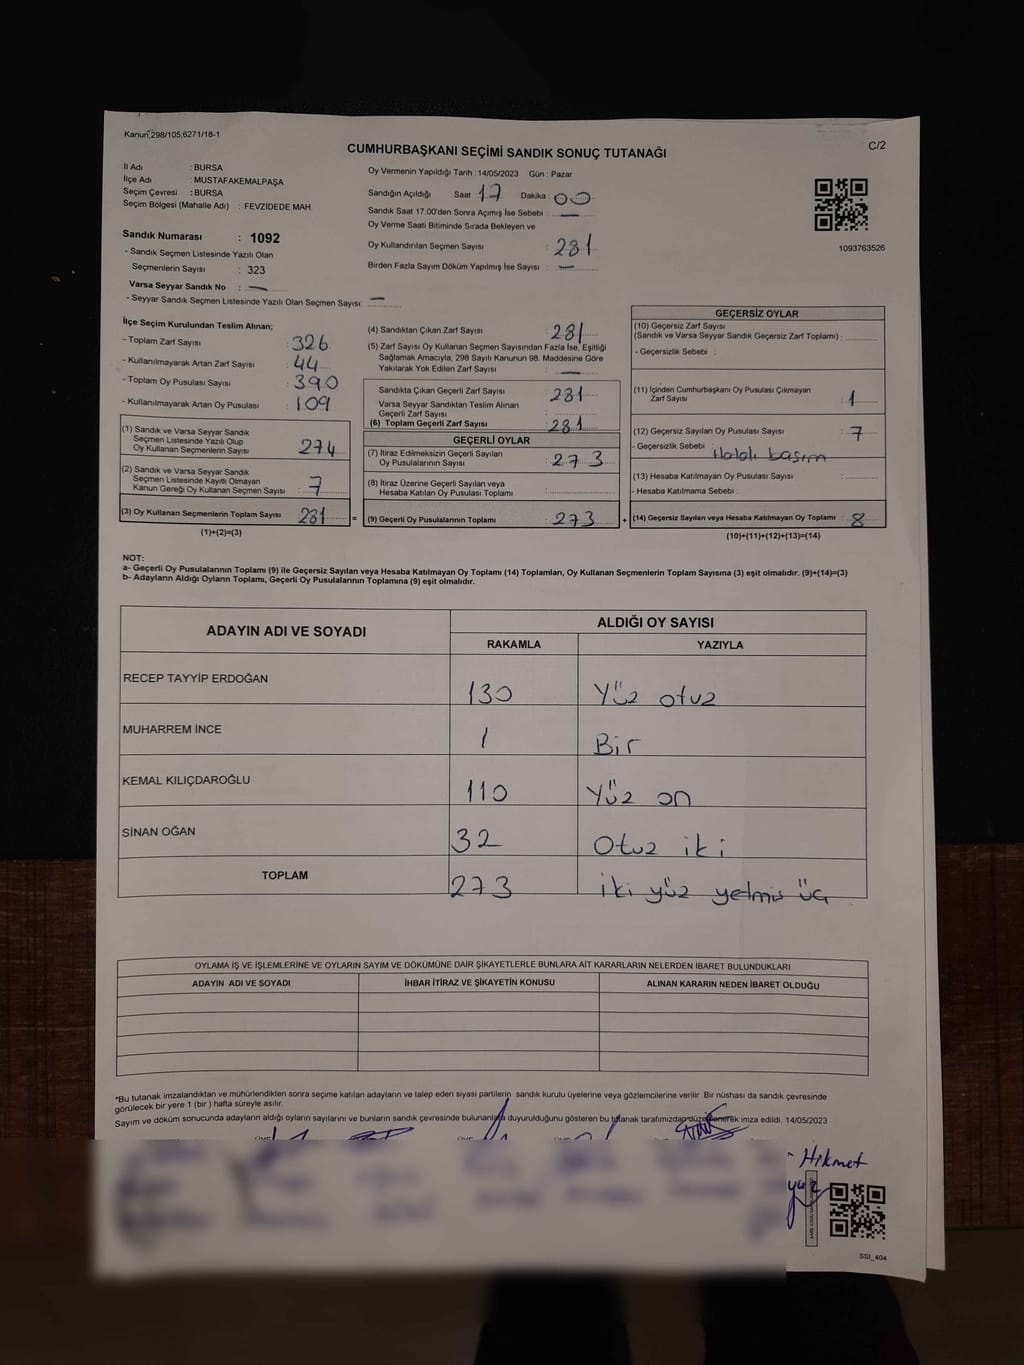 Kanun,298/105,6271/18-1
C/2
CUMHURBAŞKANI SEÇİMİ SANDIK SONUÇ TUTANAĞI
İl Adı : BURSA
İlçe Adı : MUSTAFAKEMALPAŞA
Seçim Çevresi : BURSA
Seçim Bölgesi (Mahalle Adı) : FEVZİDEDE MAH.
Sandık Numarası : 1092
- Sandık Seçmen Listesinde Yazılı Olan
Seçmenlerin Sayısı : 323
Varsa Seyyar Sandık No : —
- Seyyar Sandık Seçmen Listesinde Yazılı Olan Seçmen Sayısı : —
Oy Vermenin Yapıldığı Tarih : 14/05/2023 Gün : Pazar
Sandığın Açıldığı Saat 17 Dakika : 00
Sandık Saat 17:00'den Sonra Açımış İse Sebebi : —
Oy Verme Saati Bitiminde Sırada Bekleyen ve
Oy Kullandırılan Seçmen Sayısı : 281
Birden Fazla Sayım Döküm Yapılmış İse Sayısı : —
1093763526
İlçe Seçim Kurulundan Teslim Alınan;
- Toplam Zarf Sayısı : 326
- Kullanılmayarak Artan Zarf Sayısı : 44
- Toplam Oy Pusulası Sayısı : 390
- Kullanılmayarak Artan Oy Pusulası : 109
(1) Sandık ve Varsa Seyyar Sandık
Seçmen Listesinde Yazılı Olup
Oy Kullanan Seçmenlerin Sayısı : 274
(2) Sandık ve Varsa Seyyar Sandık
Seçmen Listesinde Kayıtlı Olmayan
Kanun Gereği Oy Kullanan Seçmen Sayısı : 7
(3) Oy Kullanan Seçmenlerin Toplam Sayısı : 281 =
(1)+(2)=(3)
(4) Sandıktan Çıkan Zarf Sayısı : 281
(5) Zarf Sayısı Oy Kullanan Seçmen Sayısından Fazla İse, Eşitliği
Sağlamak Amacıyla, 298 Sayılı Kanunun 98. Maddesine Göre
Yakılarak Yok Edilen Zarf Sayısı : —
Sandıkta Çıkan Geçerli Zarf Sayısı : 281
Varsa Seyyar Sandıktan Teslim Alınan
Geçerli Zarf Sayısı :
(6) Toplam Geçerli Zarf Sayısı : 281
GEÇERLİ OYLAR
(7) İtiraz Edilmeksizin Geçerli Sayılan
Oy Pusulalarının Sayısı : 273
(8) İtiraz Üzerine Geçerli Sayılan veya
Hesaba Katılan Oy Pusulası Toplamı :
(9) Geçerli Oy Pusulalarının Toplamı : 273 +
GEÇERSİZ OYLAR
(10) Geçersiz Zarf Sayısı
(Sandık ve Varsa Seyyar Sandık Geçersiz Zarf Toplamı) :
- Geçersizlik Sebebi :
(11) İçinden Cumhurbaşkanı Oy Pusulası Çıkmayan
Zarf Sayısı : 1
(12) Geçersiz Sayılan Oy Pusulası Sayısı : 7
- Geçersizlik Sebebi : Hatalı basım
(13) Hesaba Katılmayan Oy Pusulası Sayısı :
- Hesaba Katılmama Sebebi :
(14) Geçersiz Sayılan veya Hesaba Katılmayan Oy Toplamı : 8
(10)+(11)+(12)+(13)=(14)
NOT:
a- Geçerli Oy Pusulalarının Toplamı (9) ile Geçersiz Sayılan veya Hesaba Katılmayan Oy Toplamı (14) Toplamları, Oy Kullanan Seçmenlerin Toplam Sayısına (3) eşit olmalıdır. (9)+(14)=(3)
b- Adayların Aldığı Oyların Toplamı, Geçerli Oy Pusulalarının Toplamına (9) eşit olmalıdır.
ADAYIN ADI VE SOYADI
ALDIĞI OY SAYISI
RAKAMLA YAZIYLA
RECEP TAYYİP ERDOĞAN 130 Yüz otuz
MUHARREM İNCE 1 Bir
KEMAL KILIÇDAROĞLU 110 Yüz on
SİNAN OĞAN 32 Otuz iki
TOPLAM 273 iki yüz yetmiş üç
OYLAMA İŞ VE İŞLEMLERİNE VE OYLARIN SAYIM VE DÖKÜMÜNE DAİR ŞİKAYETLERLE BUNLARA AİT KARARLARIN NELERDEN İBARET BULUNDUKLARI
ADAYIN ADI VE SOYADI İHBAR İTİRAZ VE ŞİKAYETİN KONUSU ALINAN KARARIN NEDEN İBARET OLDUĞU
*Bu tutanak imzalandıktan ve mühürlendikten sonra seçime katılan adayların ve talep eden siyasi partilerin sandık kurulu üyelerine veya gözlemcilerine verilir. Bir nüshası da sandık çevresinde
görülecek bir yere 1 (bir) hafta süreyle asılır.
Sayım ve döküm sonucunda adayların aldığı oyların sayılarını ve bunların sandık çevresinde bulunanlara duyurulduğunu gösteren bu tutanak tarafımızdan düzenlenerek imza edildi. 14/05/2023
Hikmet
SSI_404